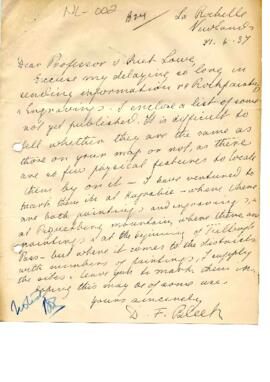 NL-002
B24
La Rochelle
Newlands
21.6.37
Dear Professor & Lowe,
Excuse my delaying so long in
sending information re Rock paintings
& Engravings. I enclose a list of some
not yet published. It is difficult to
tell whether they are the same as
those on your map or not, as there
are so few physical features to locate
them by on it – I have ventured to
mark them in at – where there
are both paintings and engravings, &
at Piquetberg mountain, where there are
paintings, & at the beginning of Tulbagh
Pass – but where it comes to the districts
with numbers of paintings, I supply
the sites & leave you to mark them in.
Hoping this may be of some use
Yours sincerely
D. F. Bleek